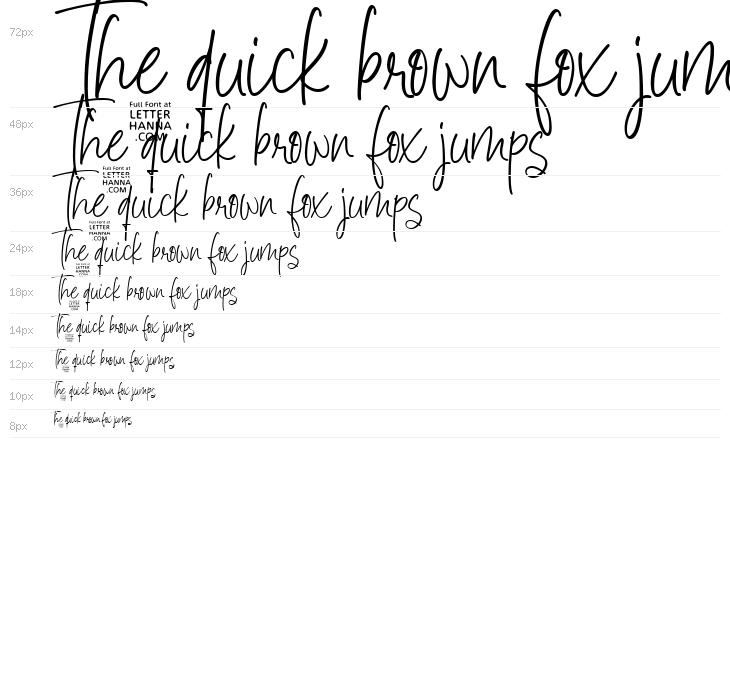 72px The quick brown fox jum
Full Font at
LETTER
HANNA
.COM
48px The quick brown fox jumps
Full Font at
LETTER
HANNA
.COM
36px The quick brown fox jumps
Full Font at
LETTER
HANNA
.COM
24px The quick brown fox jumps
Full Font at
LETTER
HANNA
.COM
18px The quick brown fox jumps
14px The quick brown fox jumps
12px The quick brown fox jumps
10px The quick brown fox jumps
8px The quick brown fox jumps